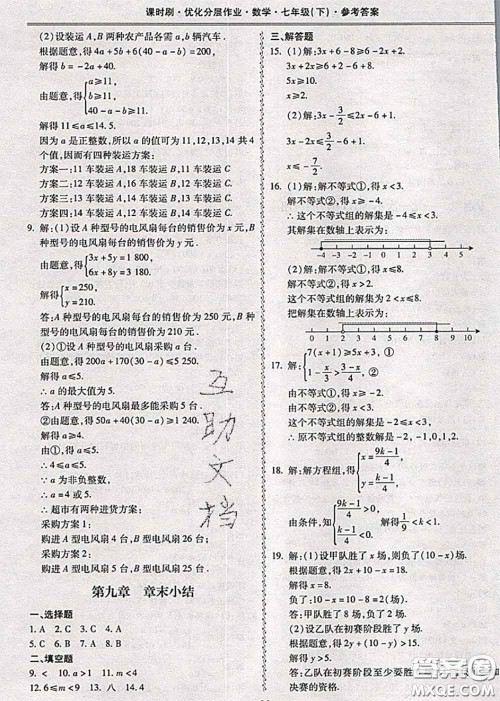 课时刷·优化分层作业·数学·七年级(下)·参考答案
(2)设装运 A,B 两种农产品各需 a,b 辆汽车.
根据题意,得 4a+2b+(40-a-b)×6
解得 b=-2a+40.
由题意,得{a≥11, b≥11, 40-a-b≥11.
解得 11≤a≤14.5.
因为 a 是正整数,所以 a 的值可为 11,12,13,14 共 4
个值,因而有四种装运方案:
方案一:11 车装运 A,18 车装运 B,11 车装运 C.
方案二:12 车装运 A,16 车装运 B,12 车装运 C.
方案三:13 车装运 A,14 车装运 B,13 车装运 C.
方案四:14 车装运 A,12 车装运 B,14 车装运 C.
9. 解:(1)设 A 种型号的电风扇每台的销售价为 x 元,B
种型号的电风扇每台的销售价为 y 元.
由题意,得{3x+5y=1 800,
解得{x=250, y=210.
答:A 种型号的电风扇每台的销售价为 250 元,B 种
型号的电风扇每台的销售价为 210 元.
(2)①设 A 种型号的电风扇采购 a 台.
由题意,得 200a+170(30-a)≤5
解得 a≤5.
∴a 的最大值为 5.
答:A 种型号的电风扇最多能采购 5 台.
②由题意,得 50a+40(30-a)
解得 a
由①,得 a≤5.
∴4≤a≤5.
∵a 为非负整数,
∴a=4 或 5.
∴超市有两种进货方案:
采购方案 1:
购进 A 型电风扇 4 台,B 型电风扇 26 台;
采购方案 2:
购进 A 型电风扇 5 台,B 型电风扇 25 台.
第九章 章末小结
一、选择题
1. A 2. C 3. C 4. A 5. C 6. B 7. D 8. A
二、填空题
9. < 10. a>1 11. m<4
12. 6≤m<9 13. 八 14. 4
三、解答题
15. (1)解:3x+6-8≥4-2x+2,
3x+2x≥4+2-6+8,
5x≥
x≥
(2)解:3x-3/2≤2x-6-
3x-2x≤3/2-6+1.
x≤-7/2.
16. (1)解:解不等式①,得 x<3.
解不等式②,得 x≥-4.
∴这个不等式组的解集是 -4≤x<3.
其解集在数轴上表示为:
-5 -4 -3 -2 -1 0 1 2 3 4
(2)解:解不等式①,得 x<8.
解不等式②,得 x≥2.
这个不等式组的解集为 2≤x<8.
把解集在数轴上表示为:
17. {7(x+1)≥5x+3,① 1-x/3>
由不等式①,得 x≥-2.
由不等式②,得 x<
∴不等式组的解集为 -2≤x<
∴原不等式组的整数解是 -2,-1,0,1,2.
18. 解:解方程组,得{x=9k-1/4, y=
由条件,知{9k-1/4>0, 解得 1/9<k<1.
19. 解:(1)设甲队胜了 x 场,则负了(10-x)场.
根据题意,得 2x+10-x=18.
解得 x=8.
负了:10-8=2(场).
答:甲队胜了 8 场,负了 2 场.
(2)设乙队在初赛阶段胜了 y 场.
根据题意,得 2y+(10-y)
解得 y>5.
答:乙队在初赛阶段至少要胜
决赛的资格.
互助文档
答案圈
MXQE.COM